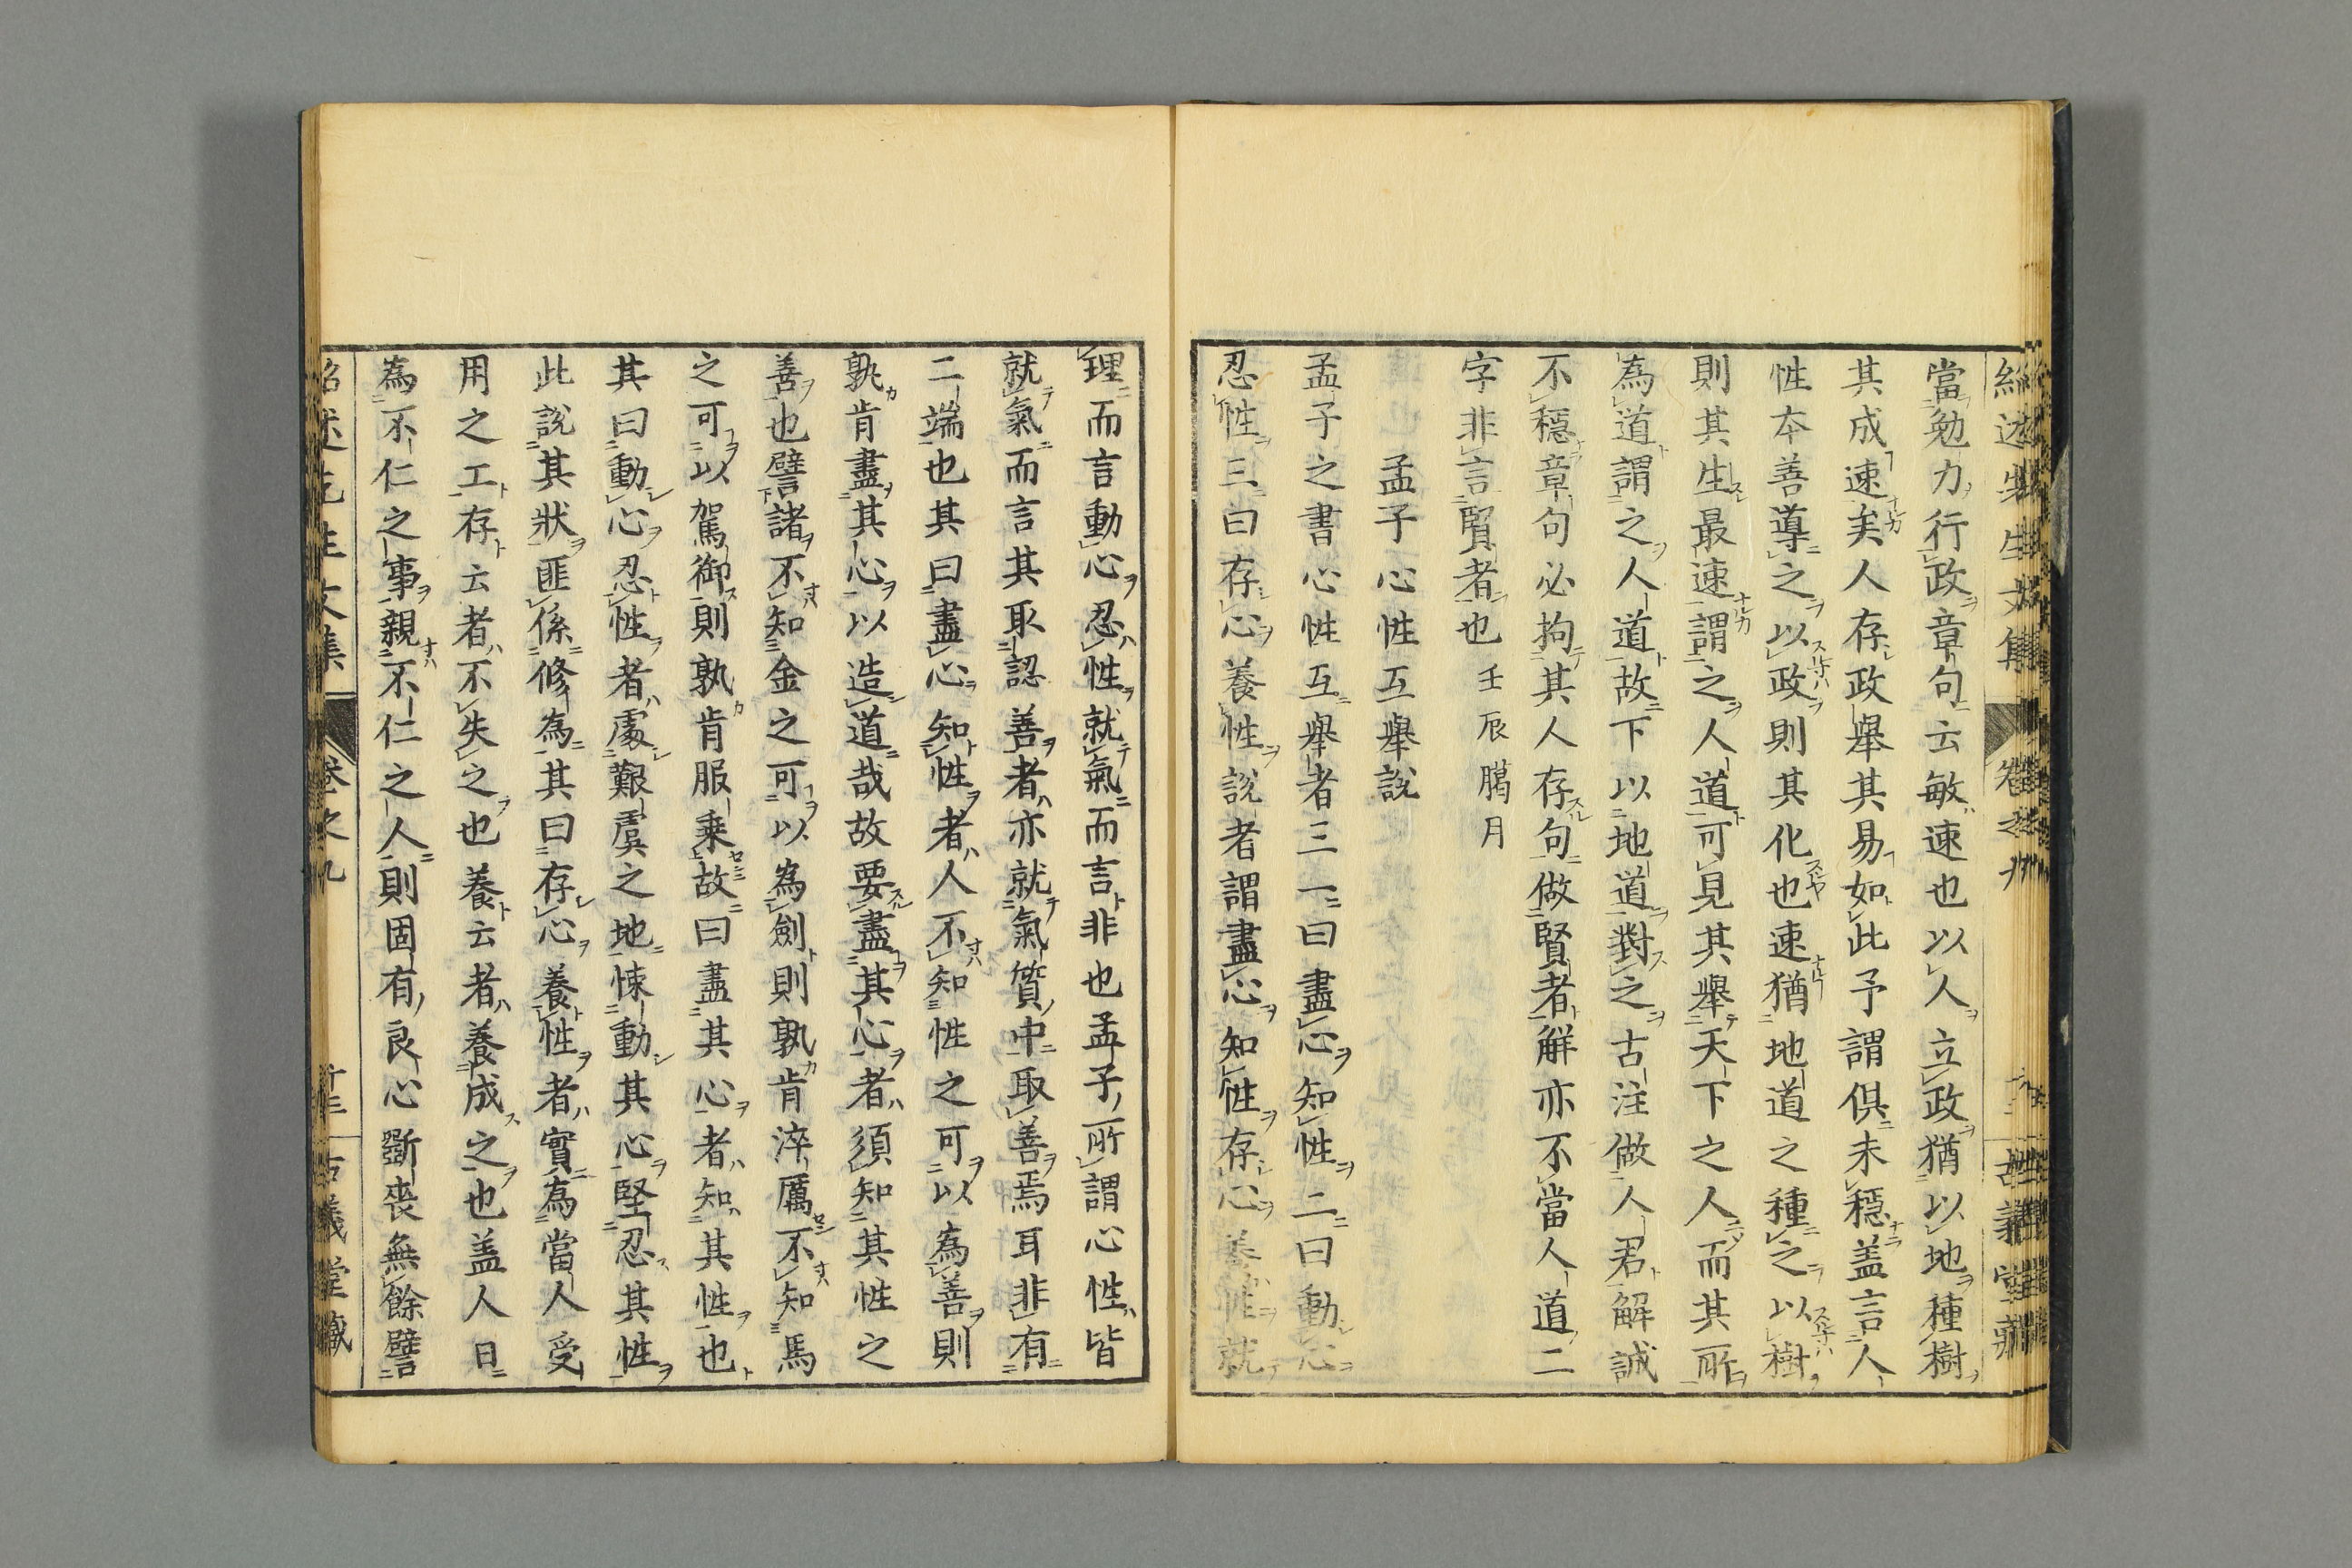 當勉力行政章句云敏速也以人立政猶以地種樹
其成速矣人存政舉其易如此予謂俱未穩盖言人
性本善導之以政則其化也速猶地道之種之以樹
則其生最速謂之人道可見其舉天下之人而其所
為道謂之人道故下以地道對之古注做人君解誠
不穩章句必拘其人存句做賢者解亦不當人道二
字非言賢者也 壬辰臈月
孟子心性互舉說
孟子之書心性互舉者三一曰盡心知性二曰動心
忍性三曰存心養性說者謂盡心知性存心養性就
理而言動心忍性就氣而言非也孟子所謂心性皆
就氣而言其取認善者亦就氣質中取善焉耳非有
二端也其曰盡心知性者人不知性之可以為善則
孰肯盡其心以造道哉故要盡其心者須知其性之
善也譬諸不知金之可以為劍則孰肯淬厲不知馬
之可以駕御則孰肯服乗故曰盡其心者知其性也
其曰動心忍性者處艱虞之地悚動其心堅忍其性
此說其狀匪係修為其曰存心養性者實為當人受
用之工存云者不失之也養云者養成之也盖人日
為不仁之事親不仁之人則固有良心斵喪無餘譬
紹述先生文集 卷之九 十三 古義堂藏